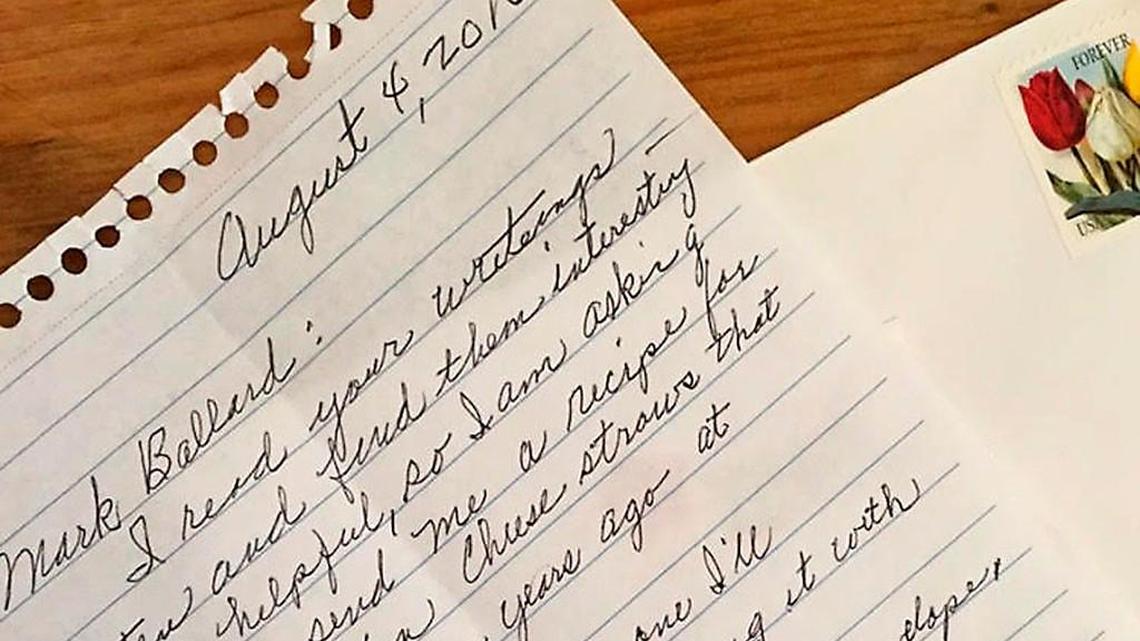 August 4, 20
Mark Ballard:
I read your writeings
and find them interesting
helpful, so I am asking
send me a recipe for
Cheese straws that
years ago at
one I'll
it with
FOREVER
USA